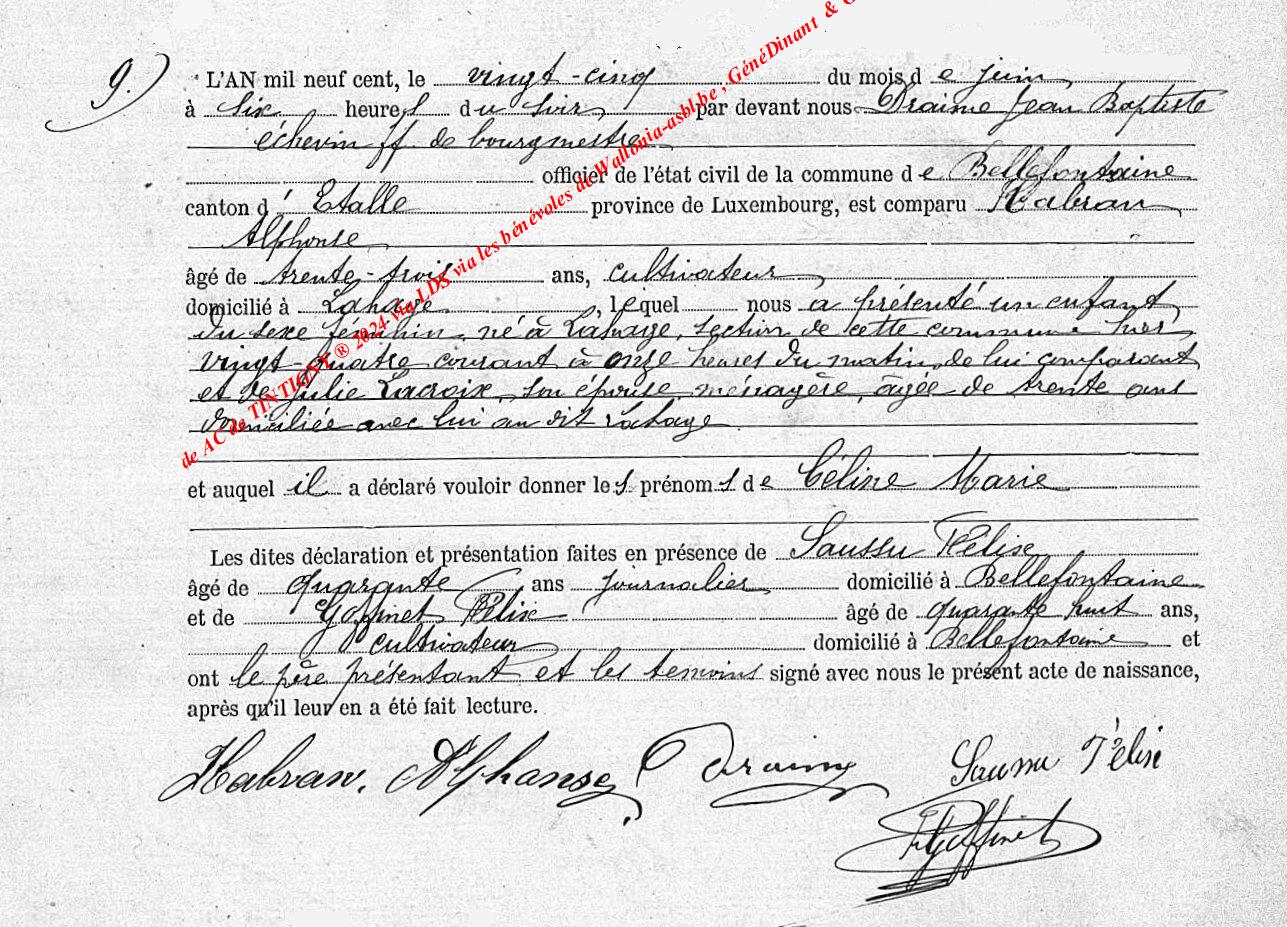 9.)
L'AN mil neuf cent, le vingt-cinq du mois de juin
à six heures du soir, par devant nous Draime Jean Baptiste
échevin ff. de bourgmestre
officier de l'état civil de la commune de Bellefontaine
canton d'Etalle province de Luxembourg, est comparu Habran
Alphonse
âgé de trente-trois ans, cultivateur
domicilié à Lahage, lequel nous a présenté un enfant
du sexe féminin, né à Lahage, section de cette commune hier
vingt-quatre courant à onze heures du matin, de lui comparant
et de Julie Lacroix, son épouse, ménagère, âgée de trente ans
domiciliée avec lui au dit Lahage
et auquel il a déclaré vouloir donner les prénoms de Céline Marie
Les dites déclaration et présentation faites en présence de Saussu Félise
âgé de quarante ans journalier domicilié à Bellefontaine
et de Goffinet Félix âgé de quarante huit ans,
cultivateur domicilié à Bellefontaine et
ont le père présentant et les temoins signé avec nous le présent acte de naissance,
après qu'il leur en a été fait lecture.
Habran, Alphonse, Draime Saussu Félise
F Goffinet
de AC de TINTIGNY ® 2024 via LDS via les bénévoles de Wallonia-asbl.be, GénéDinant &